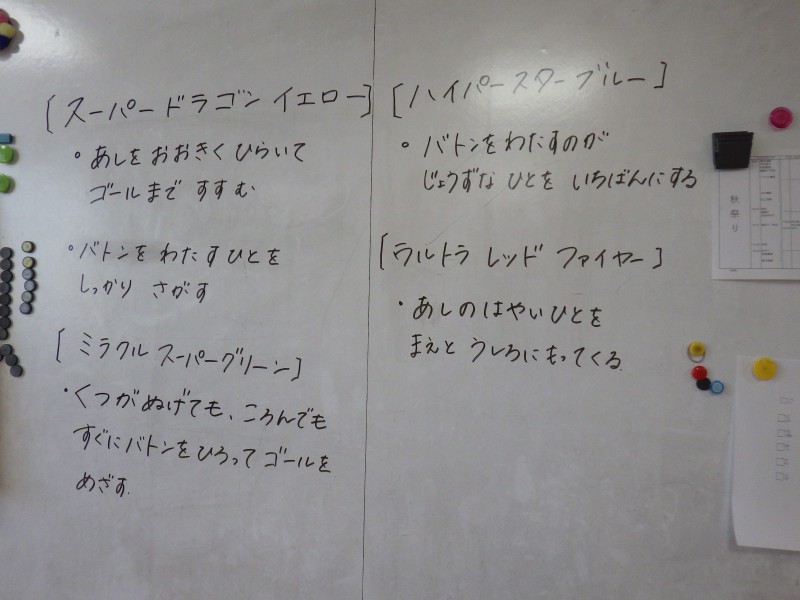 [スーパードラゴンイエロー]
・あしをおおきくひらいて
ゴールまですすむ
・バトンをわたすひとを
しっかりさがす
[ミラクルスーパーグリーン]
・くつがぬげても、ころんでも
すぐにバトンをひろってゴールを
めざす.
[ハイパースターブルー]
・バトンをわたすのが
じょうずなひとをいちばんにする
[ウルトラレッドファイヤー]
・あしのはやいひとを
まえとうしろにもってくる.
秋祭り